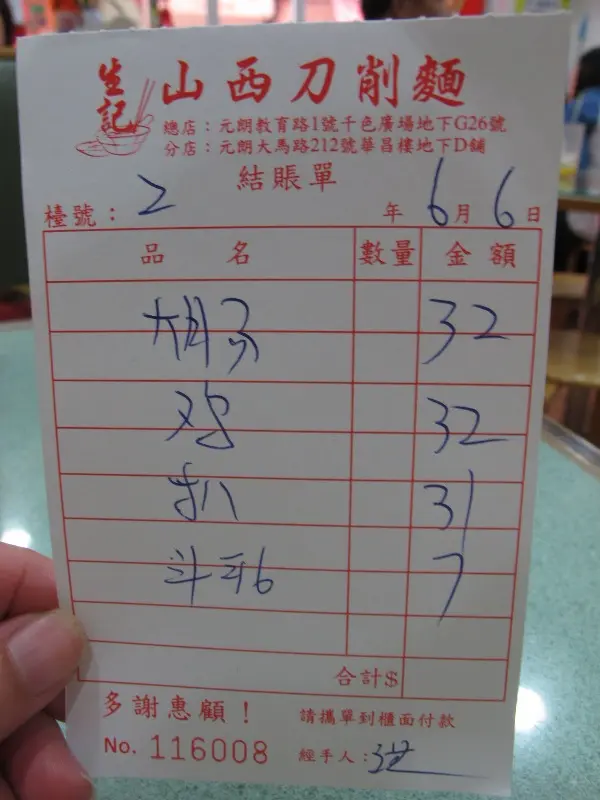 生記 山西刀削麵
總店：元朗教育路1號千色廣場地下G26號
分店：元朗大馬路212號華昌樓地下D舖
結賬單
檯號： 2 年 6 月 6 日
品 名 數量 金額
32
鸡 32
扒 31
7
合計$
多謝惠顧！ 請攜單到櫃面付款
No. 116008 經手人：